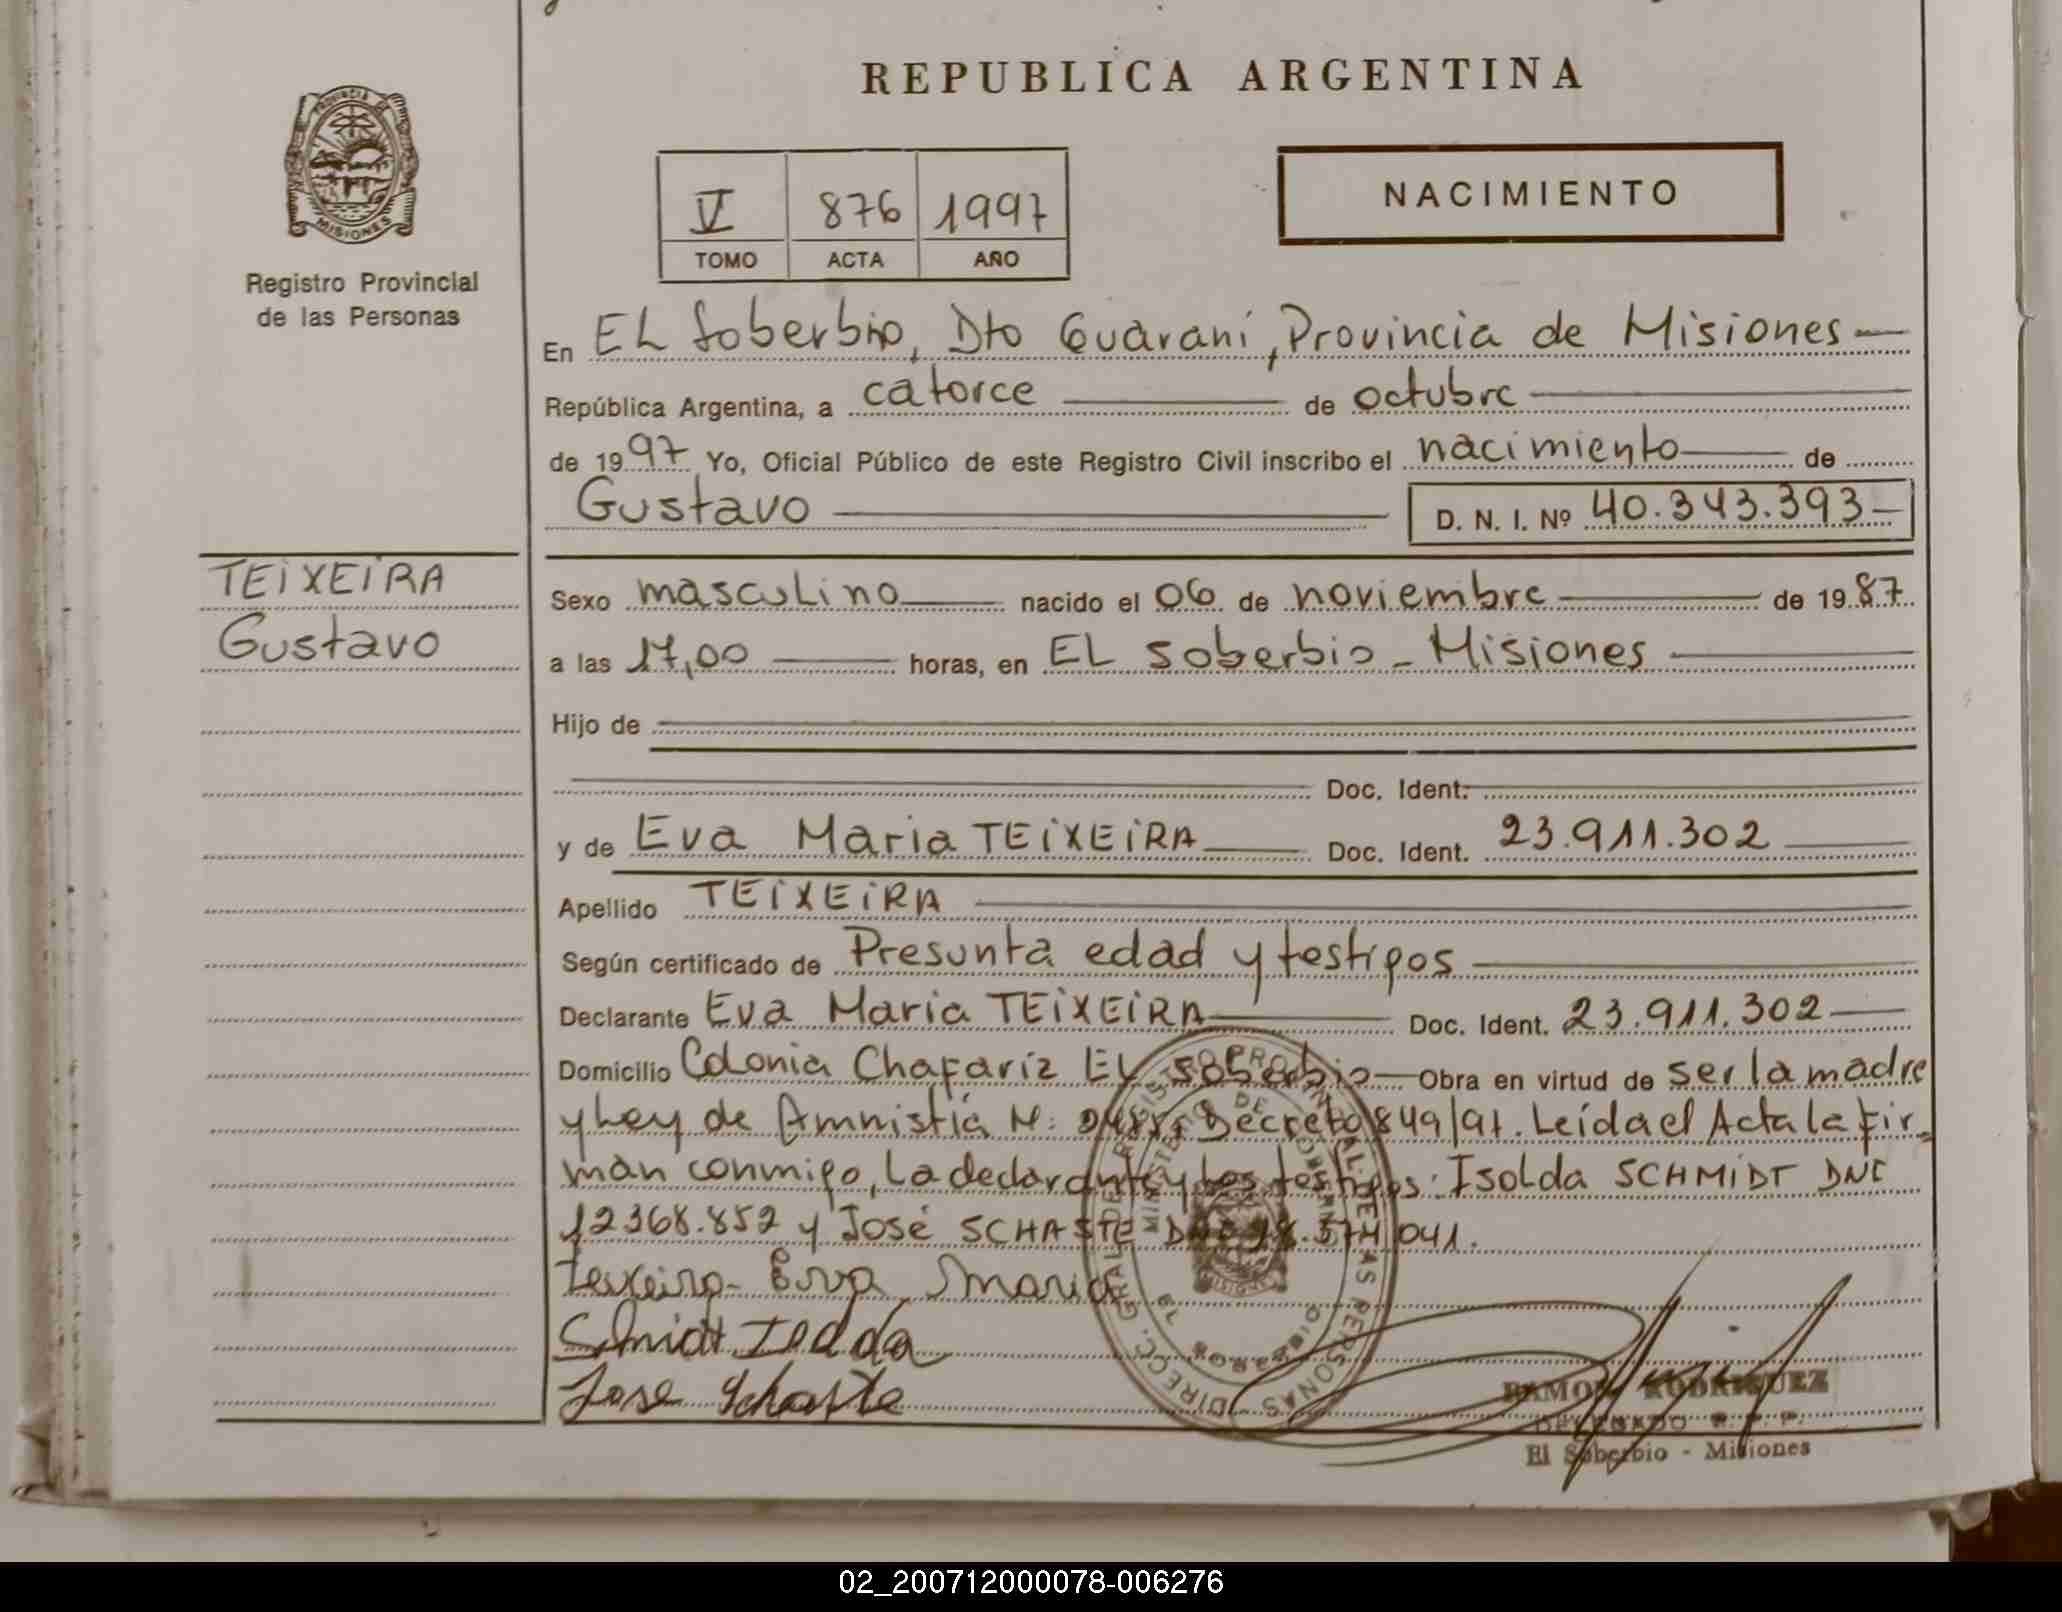 REPUBLICA ARGENTINA
PROVINCIA DE MISIONES
Registro Provincial
de las Personas
V 876 1997
TOMO ACTA AÑO
NACIMIENTO
En EL Soberbio, Dto Guaraní, Provincia de Misiones
República Argentina, a catorce de octubre
de 1997 Yo, Oficial Público de este Registro Civil inscribo el nacimiento de
Gustavo D. N. I. Nº 40.343.393
TEIXEIRA
Gustavo
Sexo masculino nacido el 06 de noviembre de 1987
a las 17,00 horas, en EL Soberbio - Misiones
Hijo de
Doc. Ident.
y de Eva Maria TEIXEIRA Doc. Ident. 23.911.302
Apellido TEIXEIRA
Según certificado de Presunta edad y testigos
Declarante Eva Maria TEIXEIRA Doc. Ident. 23.911.302
Domicilio Colonia Chafariz EL Soberbio Obra en virtud de ser la madre
y Ley de Amnistía N: Decreto 849/91. Leída el Acta la fir-
man conmigo, La declarante y Los testigos: Isolda SCHMIDT DNI
12368.852 y José SCHASTE 041.
Teixeira Eva Maria
Schmidt
Jose Schaste
DIRECC. GRAL. DE REGISTRO PROVINCIAL DE LAS PERSONAS
MINISTERIO DE GOBIERNO
MISIONES
EL SOBERBIO
RAMON RODRIGUEZ
DELEGADO R. P. P.
El Soberbio - Misiones
02_200712000078-006276